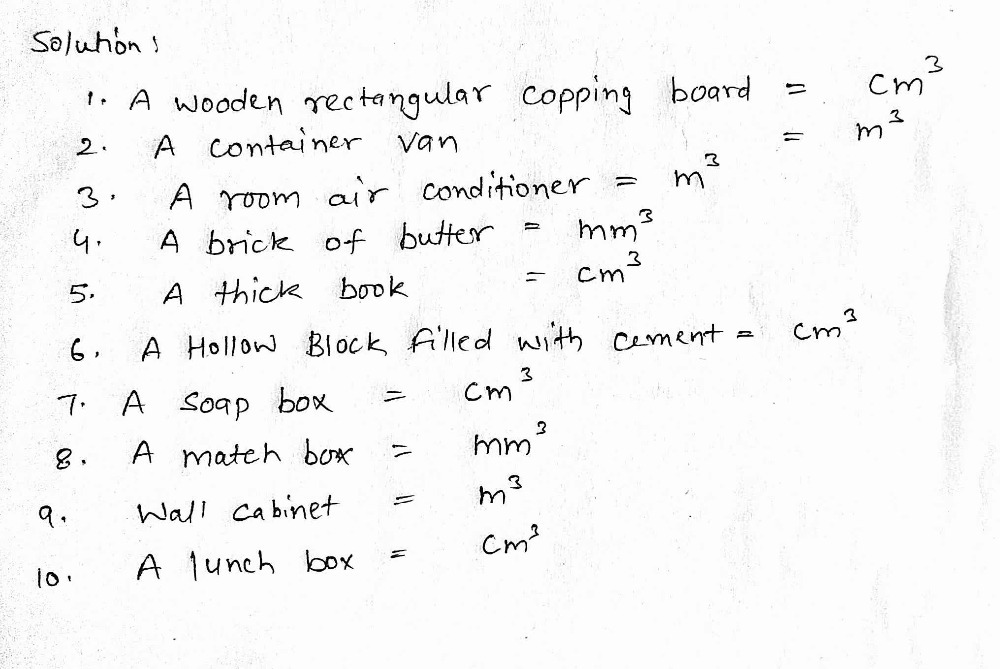 Solution :
1. A wooden rectangular copping board = cm³
2. A container van = m³
3. A room air conditioner = m³
4. A brick of butter = mm³
5. A thick book = cm³
6. A Hollow Block filled with cement = cm³
7. A soap box = cm³
8. A match box = mm³
9. Wall cabinet = m³
10. A lunch box = cm³